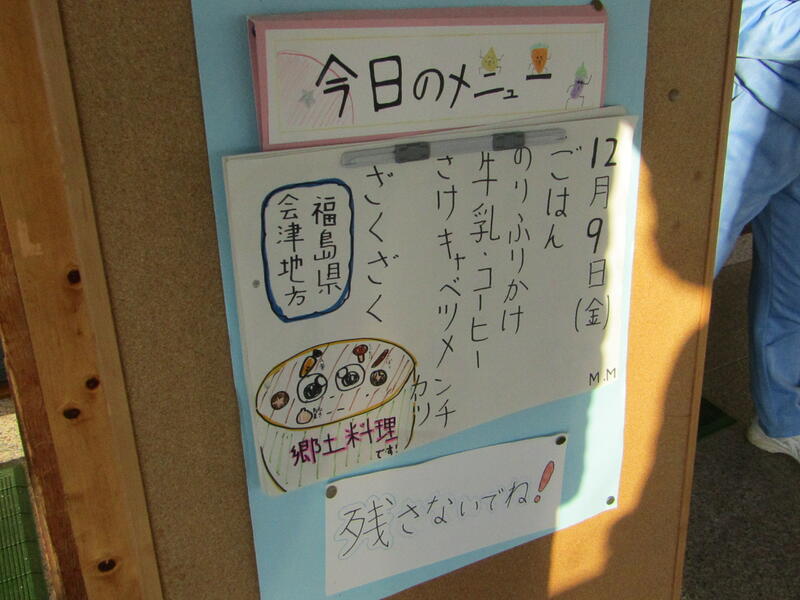 今日のメニュー
12月9日(金)
M.M
ごはん
のりふりかけ
牛乳・コーヒー
さけキャベツメンチ
カツ
ざくざく
福島県
会津地方
郷土料理
です!
残さないでね!